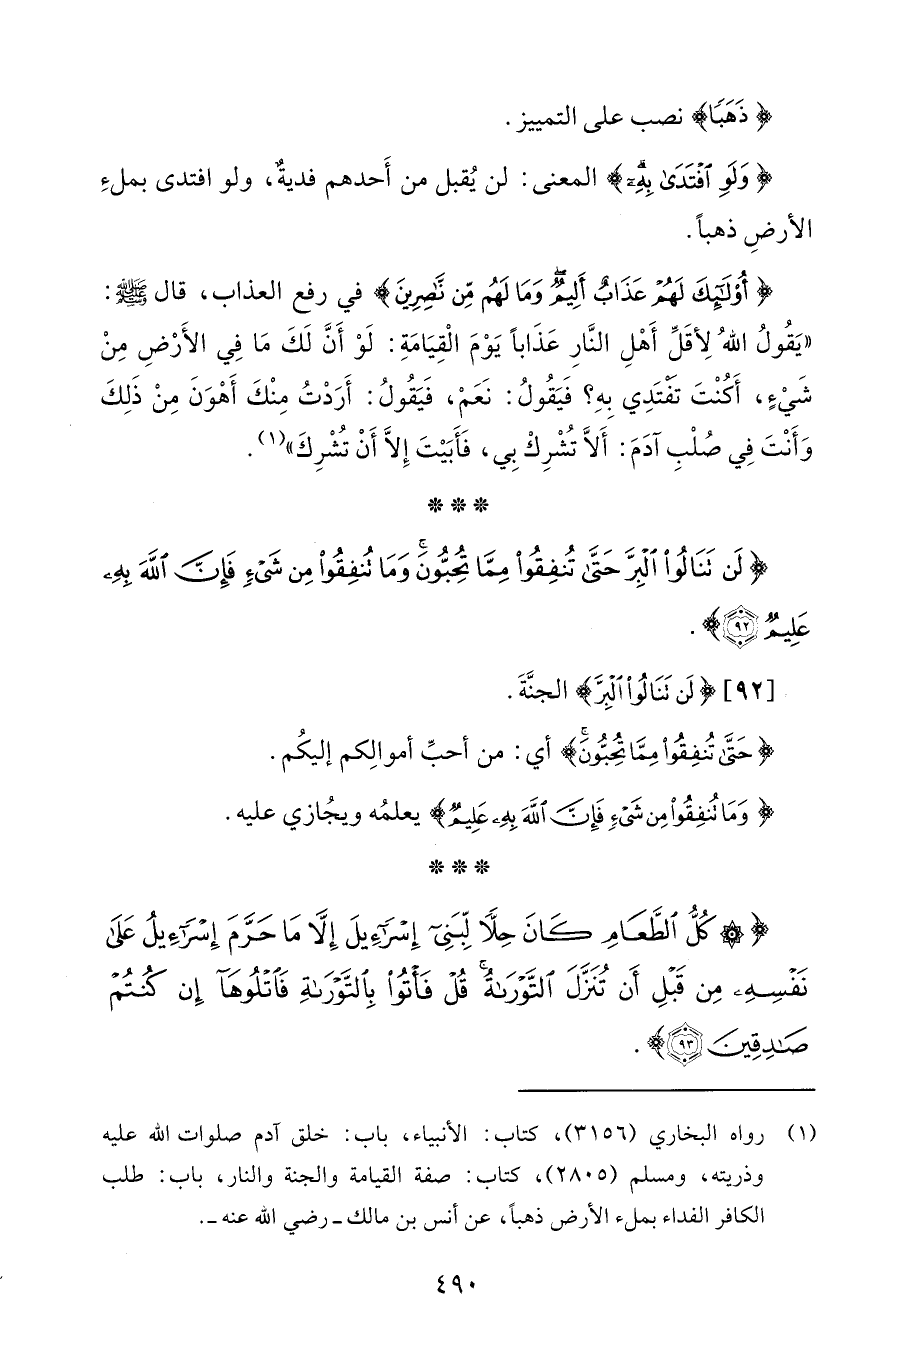 ﴿ ذَهَبًا﴾ نصب على التمييز .
﴿ وَلَوِ ٱفْتَدَىٰ بِهِۦٓۗ ﴾ المعنى: لن يُقبل من أَحدهم فديةٌ، ولو افتدى بملءِ
الأرضِ ذهباً.
﴿ أُوْلَٰٓئِكَ لَهُمْ عَذَابٌ أَلِيمٌۖ وَمَا لَهُم مِّن نَّٰصِرِينَ ﴾ في رفع العذاب، قال ﷺ:
«يَقُولُ اللهُ لِأَقَلِّ أَهْلِ النَّارِ عَذَاباً يَوْمَ الْقِيَامَةِ: لَوْ أَنَّ لَكَ مَا فِي الأَرْضِ مِنْ
شَيْءٍ، أَكُنْتَ تَفْتَدِي بِهِ؟ فَيَقُولُ: نَعَمْ، فَيَقُولُ: أَرَدْتُ مِنْكَ أَهْوَنَ مِنْ ذَلِكَ
وَأَنْتَ فِي صُلْبِ آدَمَ: أَلاَّ تُشْرِكْ بي، فَأَبَيْتَ إِلاَّ أَنْ تُشْرِكَ»(١).
* * *
﴿ لَن تَنَالُوا۟ ٱلْبِرَّ حَتَّىٰ تُنفِقُوا۟ مِمَّا تُحِبُّونَۚ وَمَا تُنفِقُوا۟ مِن شَىْءٍ فَإِنَّ ٱللَّهَ بِهِۦ
عَلِيمٌ ٩٢﴾ .
[٩٢] ﴿ لَن تَنَالُوا۟ ٱلْبِرَّ ﴾ الجنَّةَ .
﴿ حَتَّىٰ تُنفِقُوا۟ مِمَّا تُحِبُّونَۚ ﴾ أي: من أحبِّ أموالِكم إليكُم.
﴿ وَمَا تُنفِقُوا۟ مِن شَىْءٍ فَإِنَّ ٱللَّهَ بِهِۦ عَلِيمٌ ﴾ يعلمُه ويجُازي عليه.
* * *
﴿ ۞ كُلُّ ٱلطَّعَامِ كَانَ حِلًّا لِّبَنِىٓ إِسْرَٰٓءِيلَ إِلَّا مَا حَرَّمَ إِسْرَٰٓءِيلُ عَلَىٰ
نَفْسِهِۦ مِن قَبْلِ أَن تُنَزَّلَ ٱلتَّوْرَىٰةُۚ قُلْ فَأْتُوا۟ بِٱلتَّوْرَىٰةِ فَٱتْلُوهَآ إِن كُنتُمْ
صَٰدِقِينَ ٩٣﴾ .
(١) رواه البخاري (٣١٥٦)، كتاب: الأنبياء، باب: خلق آدم صلوات الله عليه
وذريته، ومسلم (٢٨٠٥)، كتاب: صفة القيامة والجنة والنار، باب: طلب
الكافر الفداء بملء الأرض ذهباً، عن أنس بن مالك ـ رضي الله عنه ـ.
٤٩٠